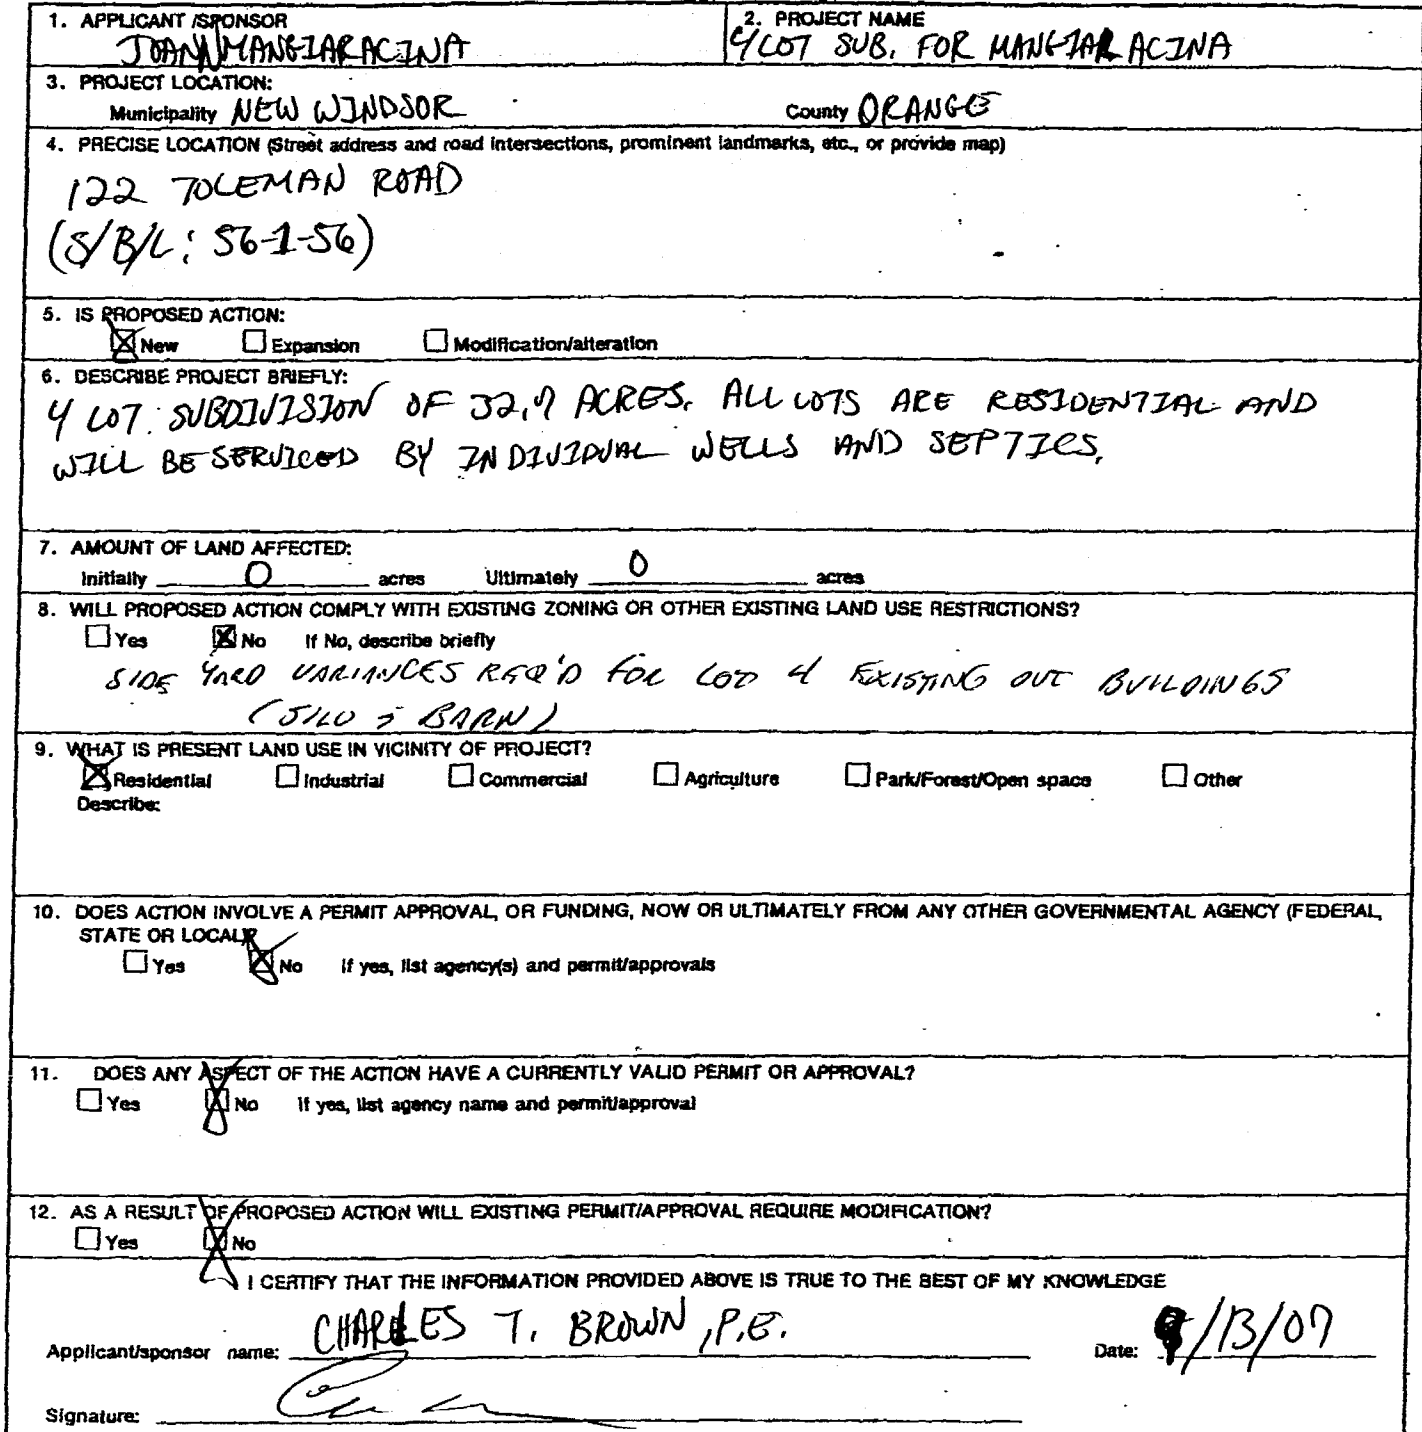 1. APPLICANT /SPONSOR
JOANN MANGIARACINA
2. PROJECT NAME
4 LOT SUB. FOR MANGIARACINA
3. PROJECT LOCATION:
Municipality NEW WINDSOR County ORANGE
4. PRECISE LOCATION (Street address and road intersections, prominent landmarks, etc., or provide map)
122 TOLEMAN ROAD
(S/B/L: 56-1-56)
5. IS PROPOSED ACTION:
New Expansion Modification/alteration
6. DESCRIBE PROJECT BRIEFLY:
4 LOT SUBDIVISION OF 32.7 ACRES. ALL LOTS ARE RESIDENTIAL AND
WILL BE SERVICED BY INDIVIDUAL WELLS AND SEPTICS.
7. AMOUNT OF LAND AFFECTED:
Initially 0 acres Ultimately 0 acres
8. WILL PROPOSED ACTION COMPLY WITH EXISTING ZONING OR OTHER EXISTING LAND USE RESTRICTIONS?
Yes No If No, describe briefly
SIDE YARD VARIANCES REQ'D FOR LOT 4 EXISTING OUT BUILDINGS
(SILO & BARN)
9. WHAT IS PRESENT LAND USE IN VICINITY OF PROJECT?
Residential Industrial Commercial Agriculture Park/Forest/Open space Other
Describe:
10. DOES ACTION INVOLVE A PERMIT APPROVAL, OR FUNDING, NOW OR ULTIMATELY FROM ANY OTHER GOVERNMENTAL AGENCY (FEDERAL,
STATE OR LOCAL)?
Yes No If yes, list agency(s) and permit/approvals
11. DOES ANY ASPECT OF THE ACTION HAVE A CURRENTLY VALID PERMIT OR APPROVAL?
Yes No If yes, list agency name and permit/approval
12. AS A RESULT OF PROPOSED ACTION WILL EXISTING PERMIT/APPROVAL REQUIRE MODIFICATION?
Yes No
I CERTIFY THAT THE INFORMATION PROVIDED ABOVE IS TRUE TO THE BEST OF MY KNOWLEDGE
Applicant/sponsor name: CHARLES T. BROWN, P.E. Date: /13/07
Signature: